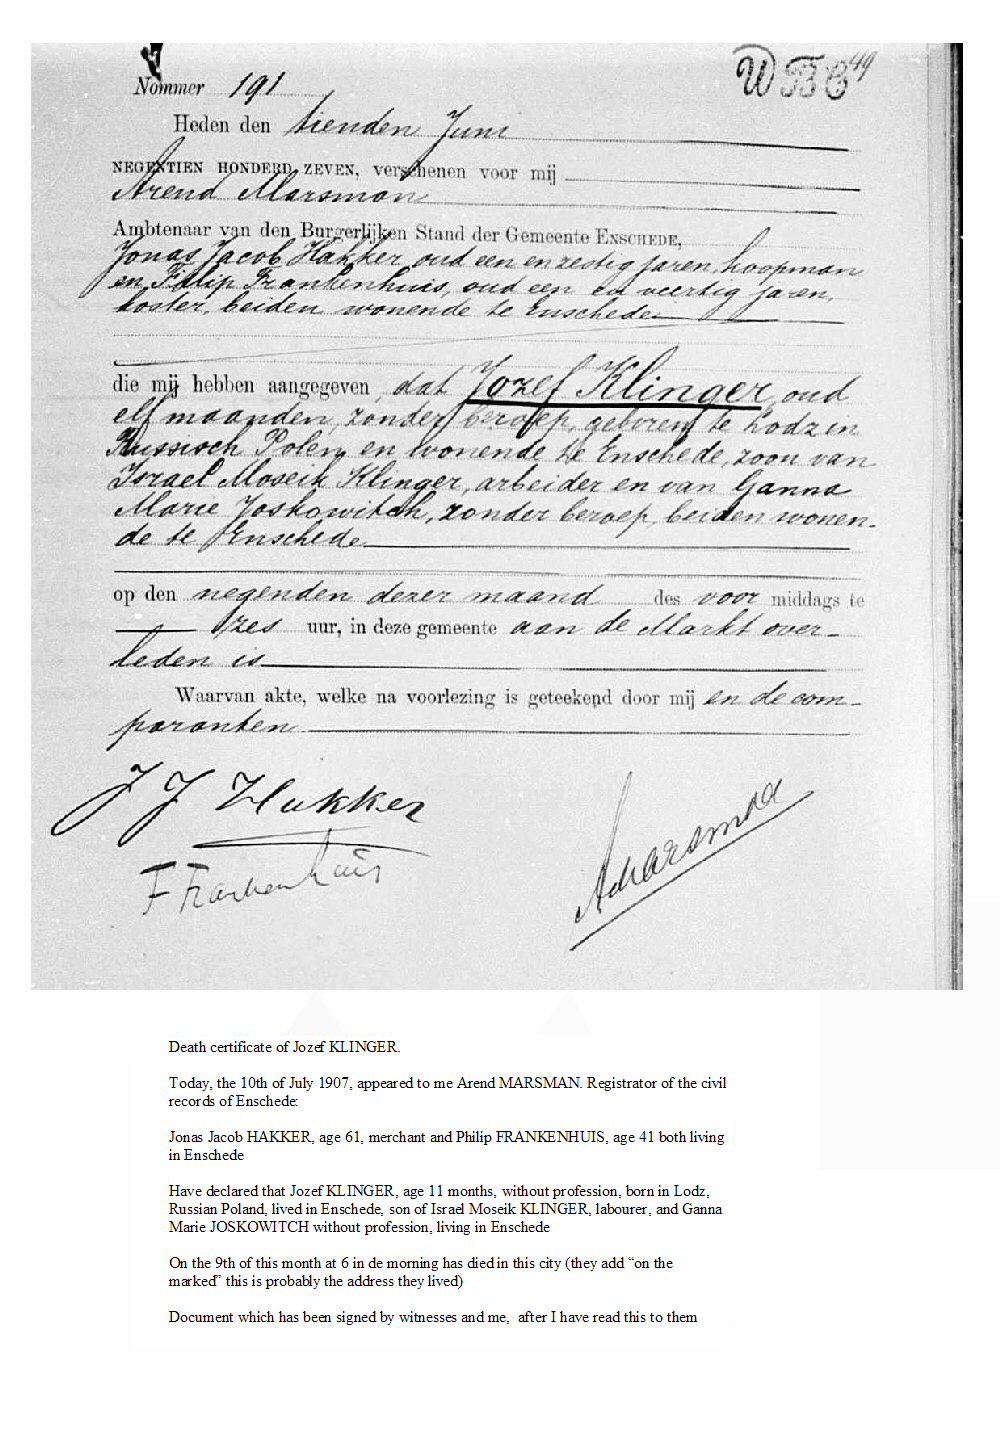 Nommer 191
W B C 49
Heden den tienden Juni
NEGENTIEN HONDERD ZEVEN, verschenen voor mij
Arend Marsman
Ambtenaar van den Burgerlijken Stand der Gemeente ENSCHEDE,
Jonas Jacob Hakker oud een en zestig jaren, koopman
en Filip Frankenhuis, oud een en veertig jaren,
koster, beiden wonende te Enschede
die mij hebben aangegeven, dat Jozef Klinger, oud
elf maanden, zonder beroep, geboren te Lodz in
Russisch Polen en wonende te Enschede, zoon van
Israel Moseik Klinger, arbeider en van Ganna
Marie Joskowitch, zonder beroep, beiden wonen-
de te Enschede
op den negenden dezer maand des voor middags te
zes uur, in deze gemeente aan de Markt over-
leden is
Waarvan akte, welke na voorlezing is geteekend door mij en de com-
paranten
J J Hakker
F Frankenhuis
AMarsman
Death certificate of Jozef KLINGER.
Today, the 10th of July 1907, appeared to me Arend MARSMAN. Registrator of the civil
records of Enschede:
Jonas Jacob HAKKER, age 61, merchant and Philip FRANKENHUIS, age 41 both living
in Enschede
Have declared that Jozef KLINGER, age 11 months, without profession, born in Lodz,
Russian Poland, lived in Enschede, son of Israel Moseik KLINGER, labourer, and Ganna
Marie JOSKOWITCH without profession, living in Enschede
On the 9th of this month at 6 in de morning has died in this city (they add “on the
marked” this is probably the address they lived)
Document which has been signed by witnesses and me,  after I have read this to them